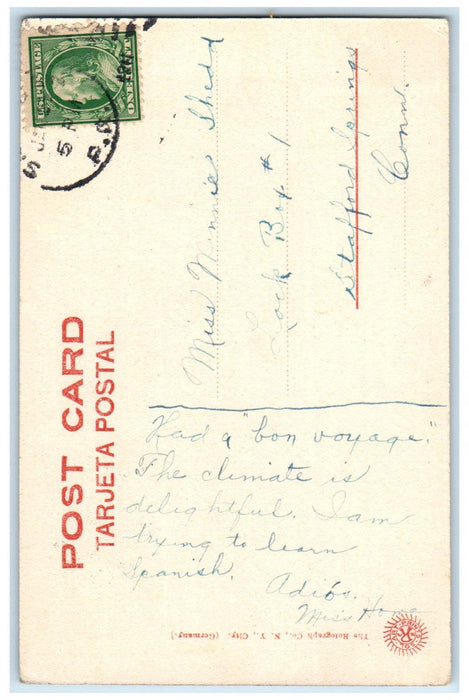 U.S. POSTAGE
ONE CENT
POST CARD
TARJETA POSTAL
Miss Minnie Shedd
Lock Box #1
Stafford Springs
Conn.
Had a "bon voyage."
The climate is
delightful. I am
trying to learn
Spanish.
Adiós.
Miss
The Rotograph Co., N. Y., City. (Germany.)